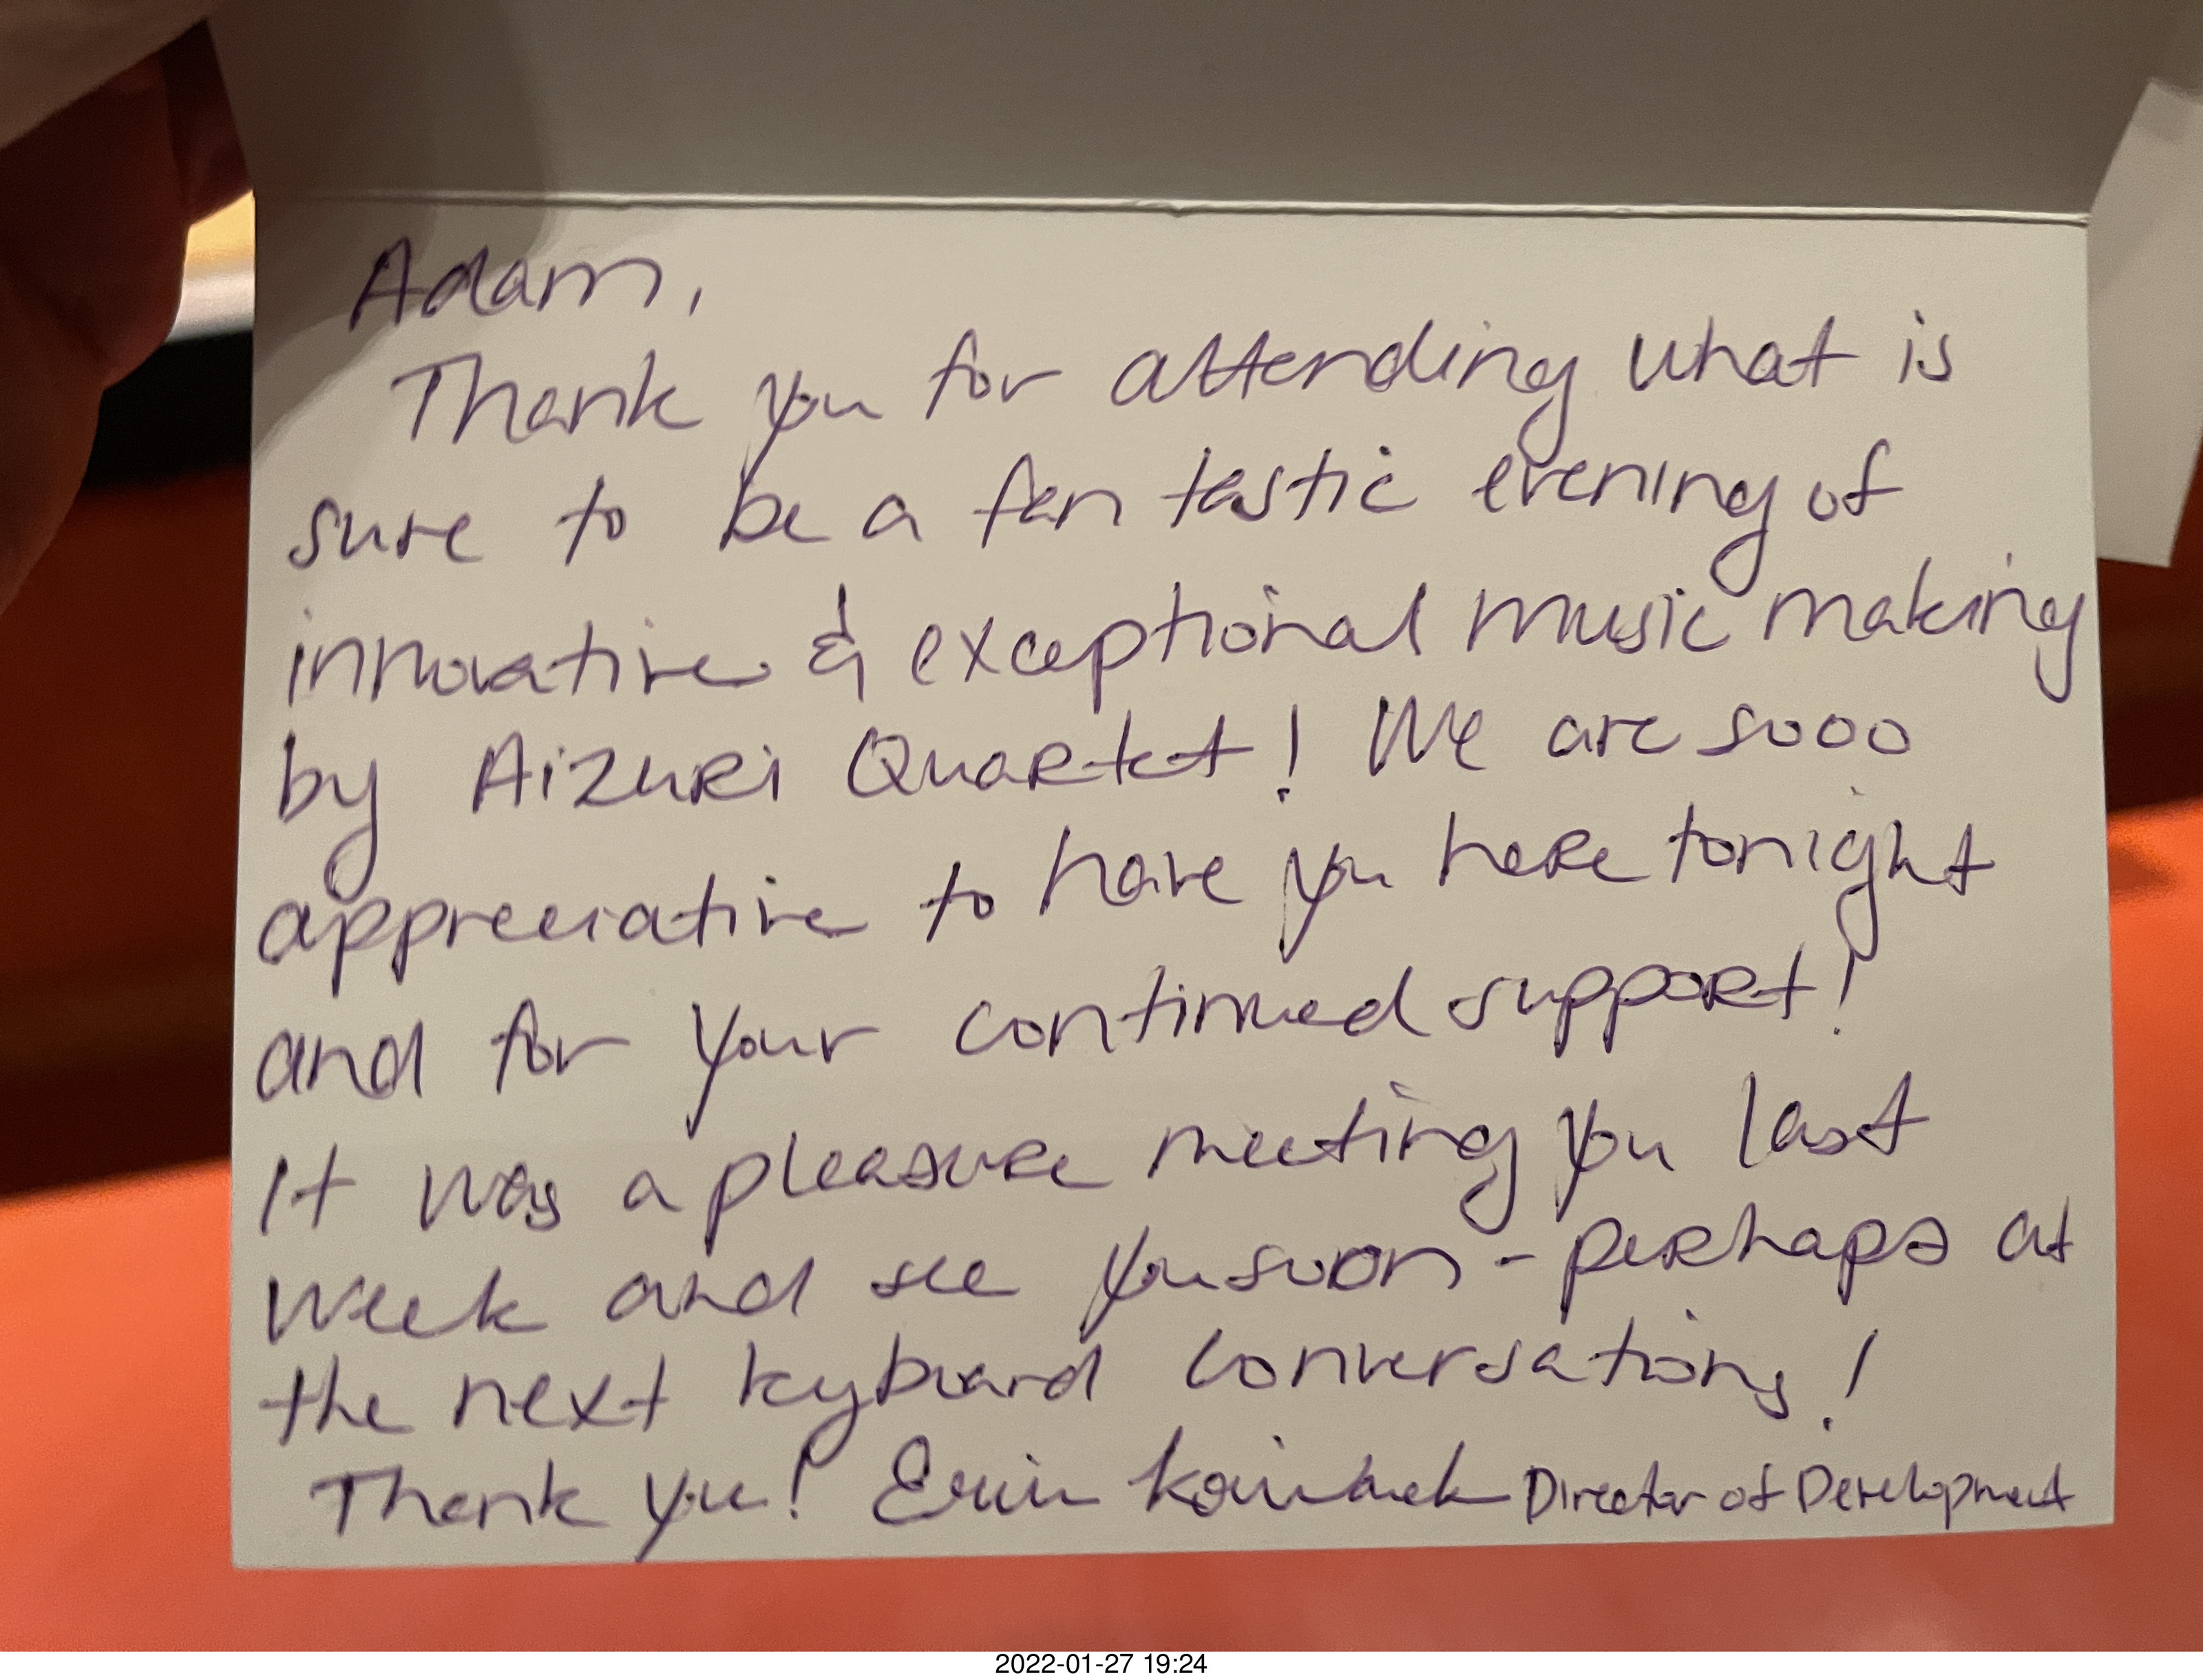 Adam,
Thank you for attending what is
sure to be a fantastic evening of
innovative & exceptional music making
by Aizuri Quartet! We are sooo
appreciative to have you here tonight
and for your continued support!
It was a pleasure meeting you last
week and see you soon - perhaps at
the next keyboard conversations!
Thank you! Erin Director of Development
2022-01-27 19:24